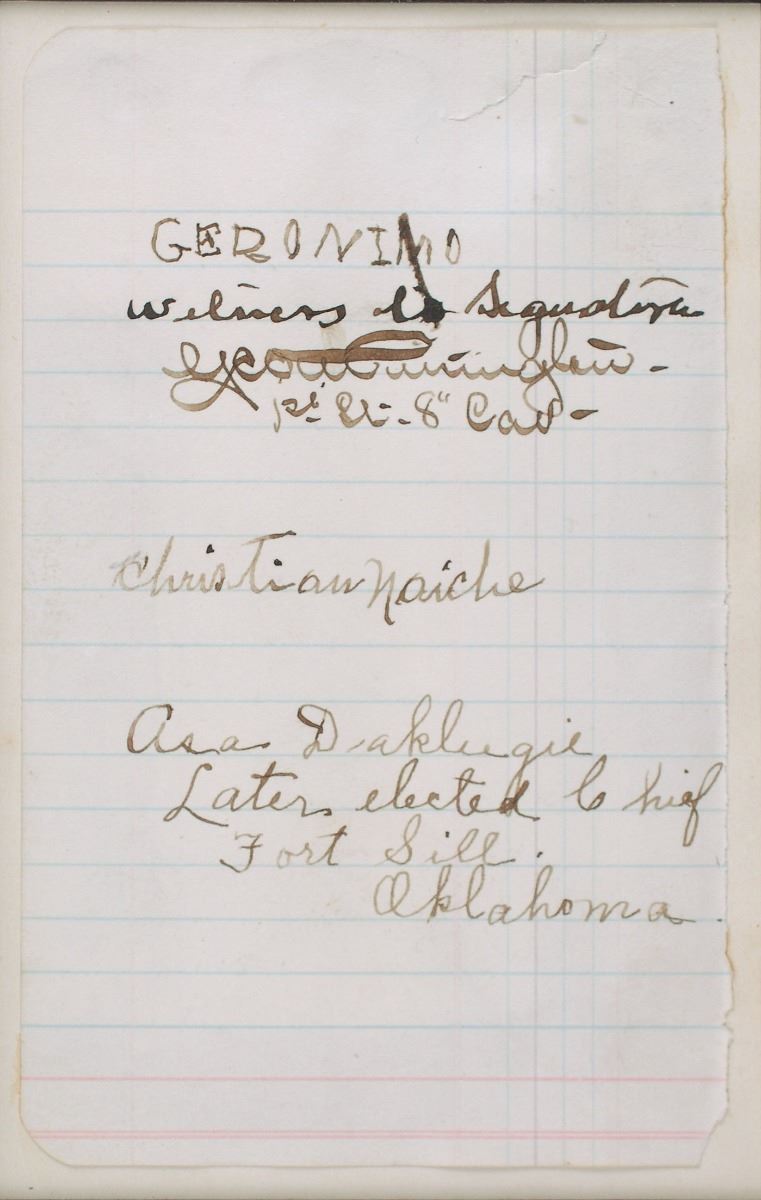 GERONIMO
Witness to Signature
1st Lt - 8" Cav -
Christian Naiche
Asa Daklugie
Later elected Chief
Fort Sill.
Oklahoma